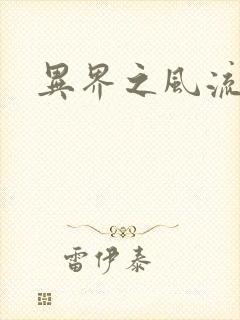 異界之風流
雷伊泰